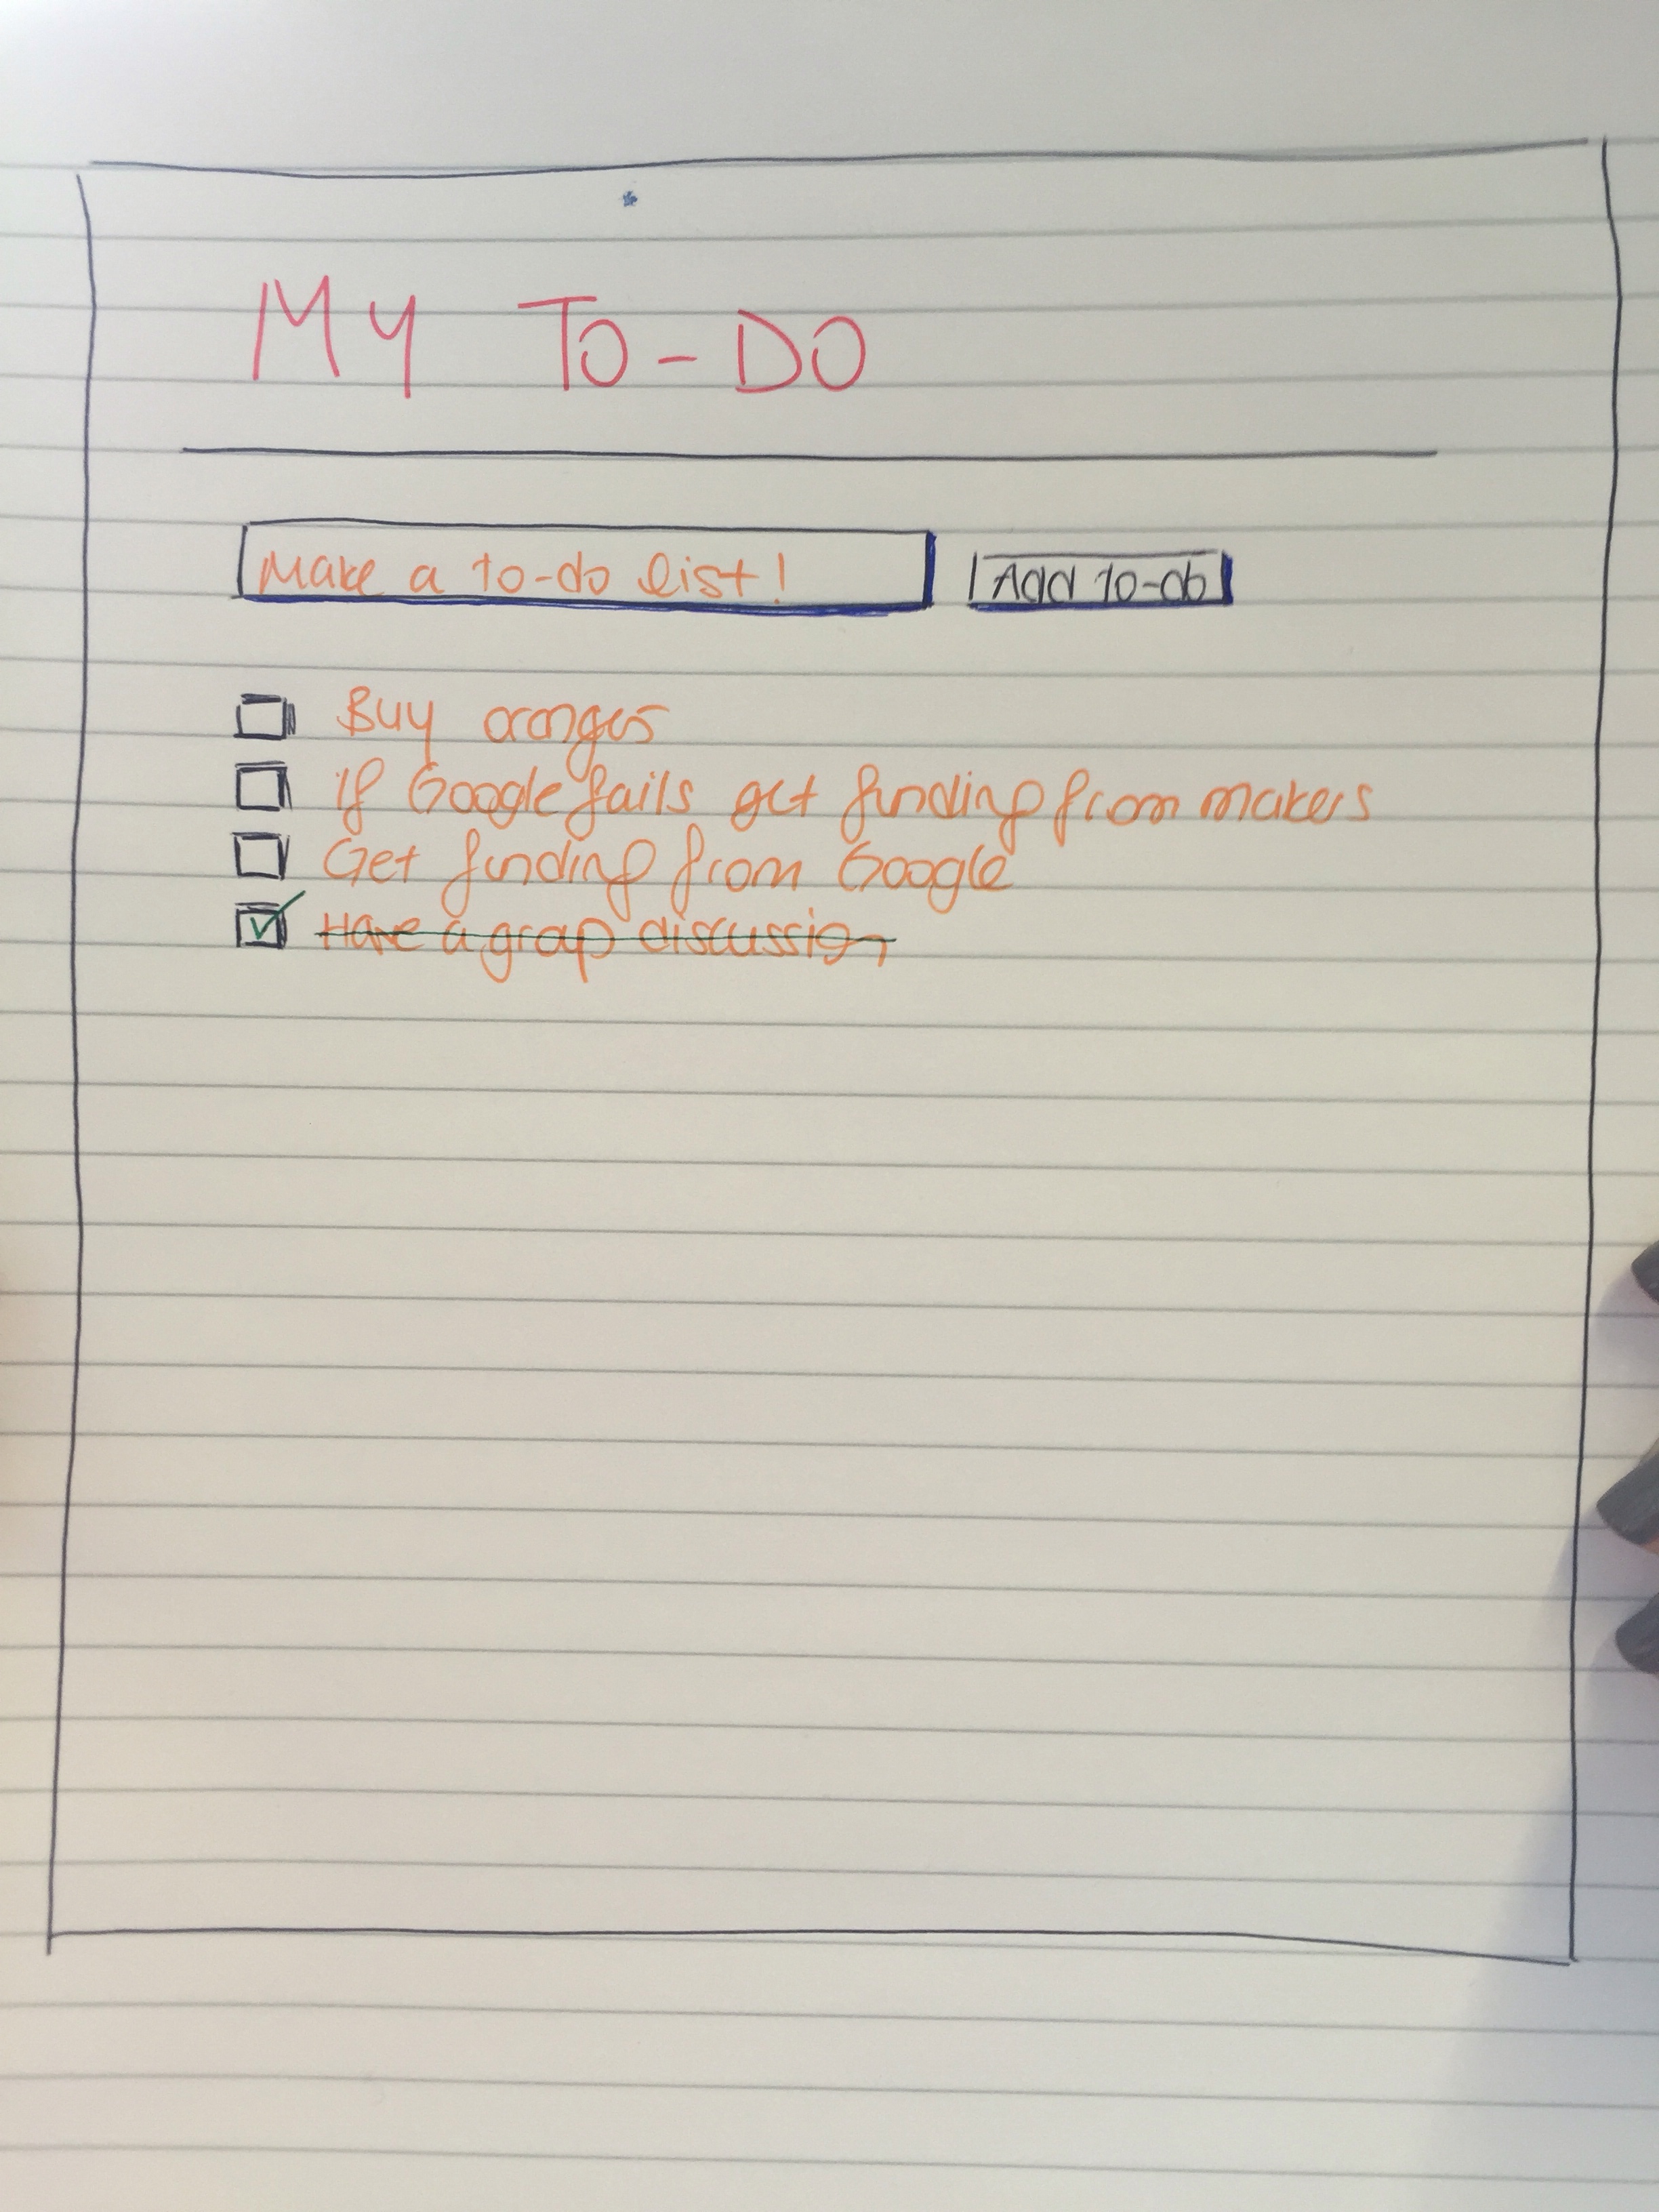 My To-Do
Make a to-do list!
Add to-do
Buy oranges
If Google fails get funding from makers
Get funding from Google
Have a group discussion